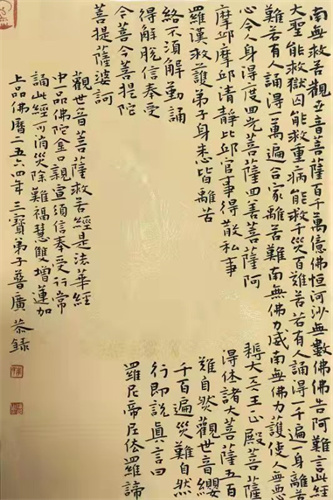 南無救苦觀世音菩薩百千萬億佛恒河沙無數佛佛告阿難言此經
大聖能救獄囚能救重病能救千災百難苦若有人誦得一千遍一身離苦
難若有人誦得一萬遍合家離苦難南無佛力威南無佛力護使人無惡
心令人身得度四光菩薩四善菩薩阿耨大天王正殿菩薩
摩邱摩邱清靜比邱官事得散私事得休諸大菩薩五百
羅漢救護弟子身悉皆離苦難自然觀世音纓
絡不須解勤誦千百遍災難自然
得解脫信奉受行即說真言曰
今菩今菩提陀羅尼帝尼佉羅諦
菩提薩婆訶
觀世音菩薩救苦經是法華經
中品佛陀金口親宣須信奉受行常
誦此經可消災除難福慧雙增蓮加
上品佛曆二五六四年三寶弟子普廣恭錄